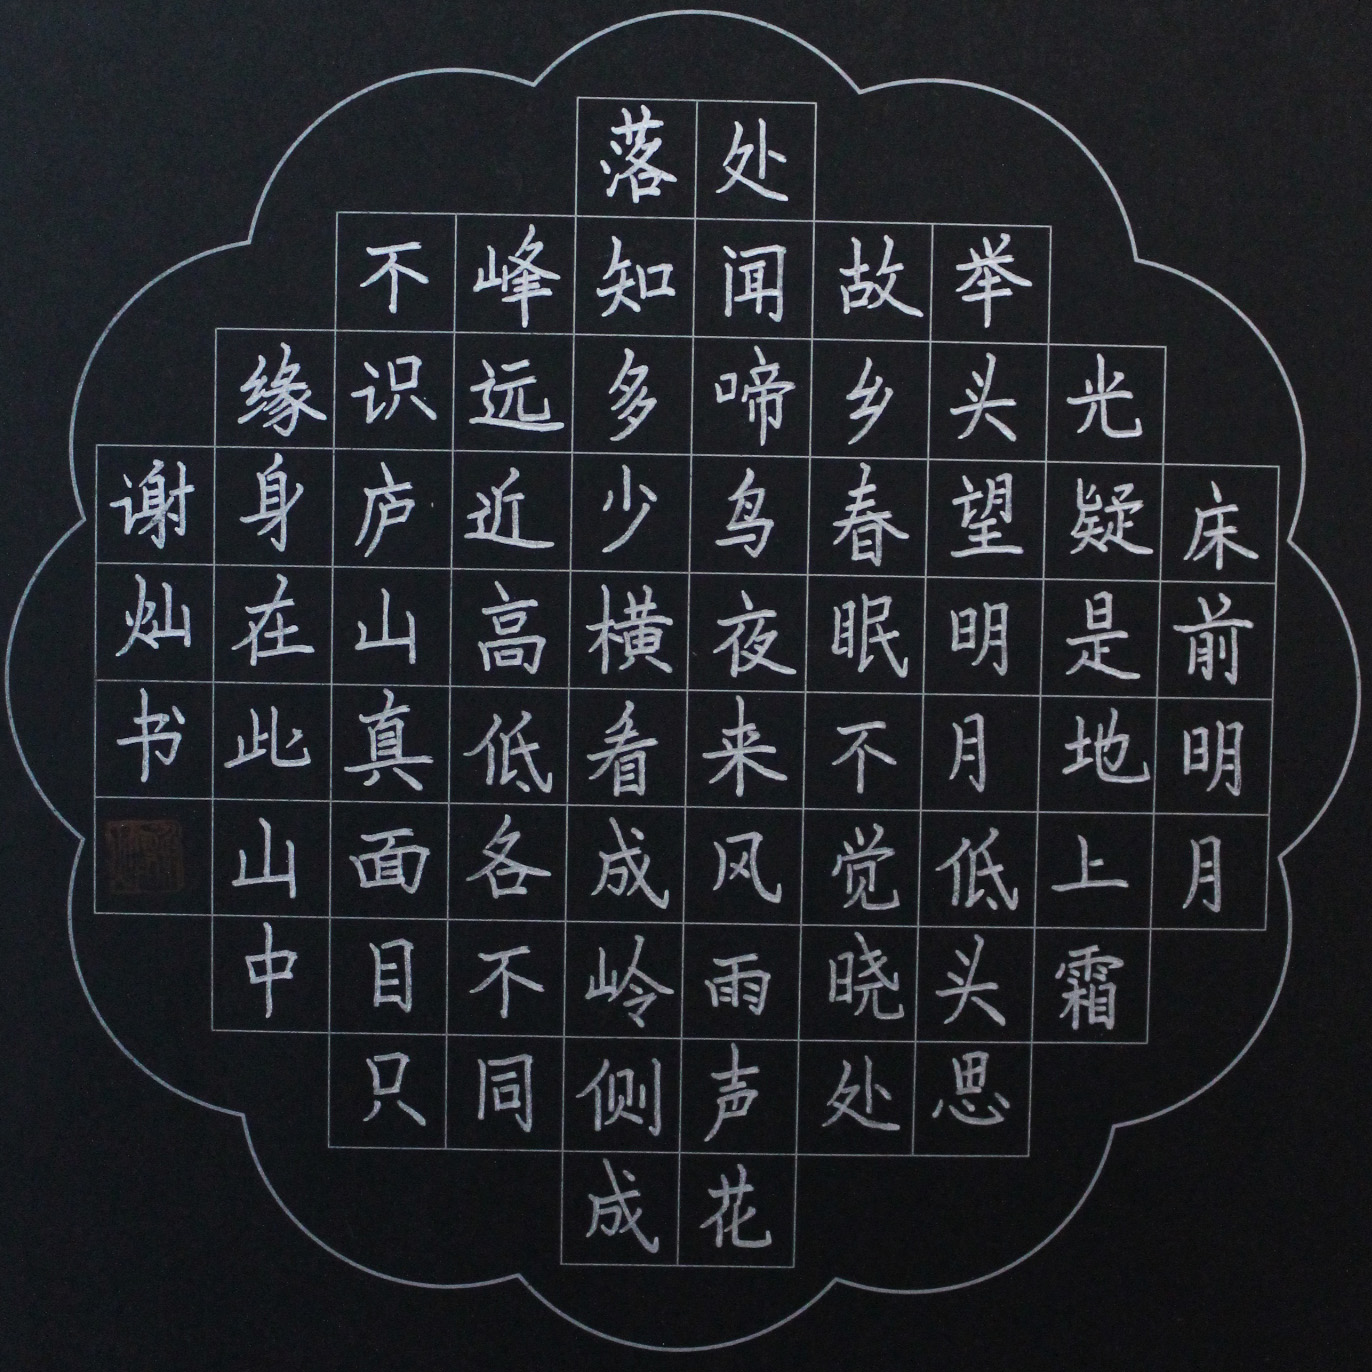 床前明月
光疑是地上霜
举头望明月低头思
故乡春眠不觉晓处
处闻啼鸟夜来风雨声花
落知多少横看成岭侧成
峰远近高低各不同
不识庐山真面目只
缘身在此山中
谢灿书